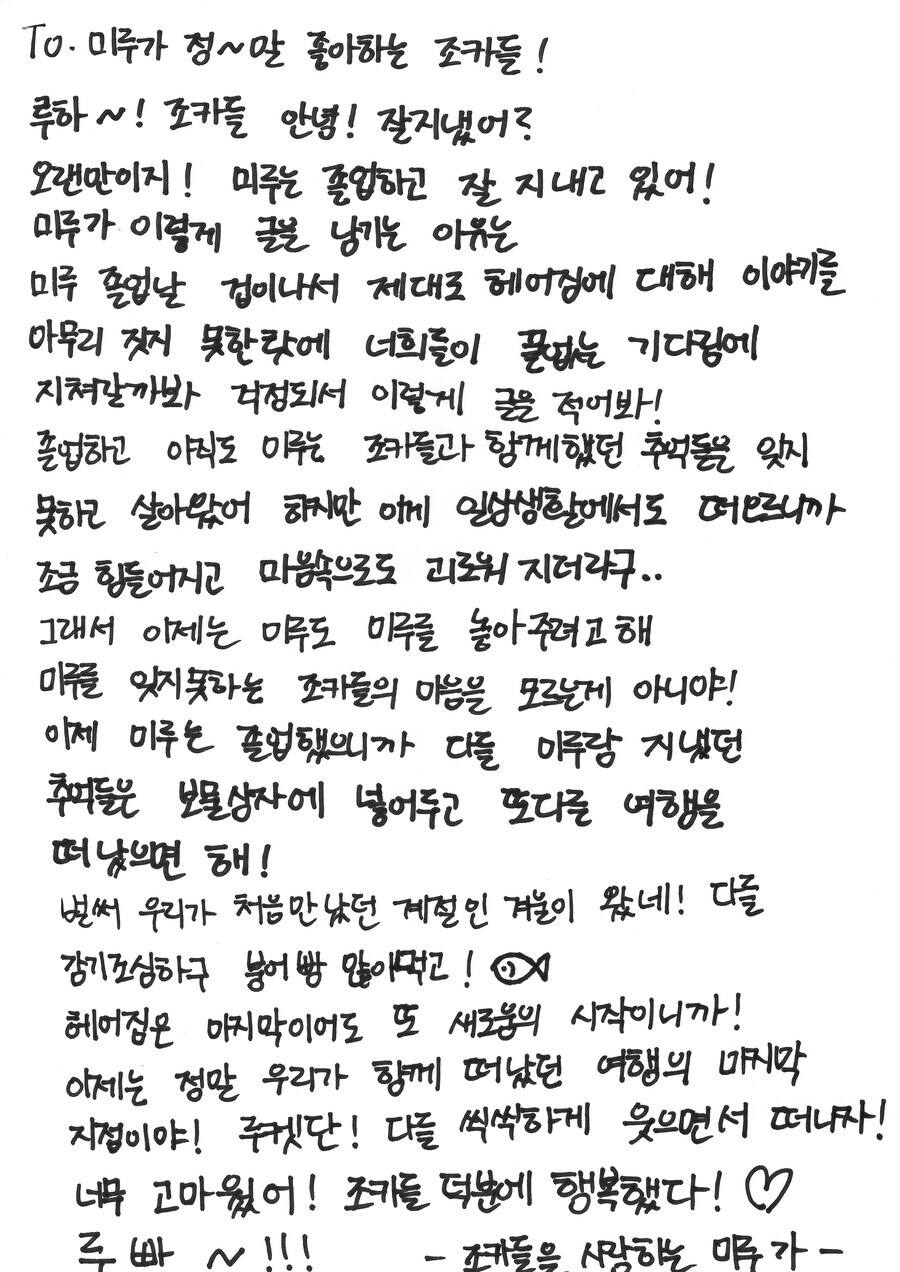 To. 미루가 정~말 좋아하는 조카들!
루하~! 조카들 안녕! 잘지냈어?
오랜만이지! 미루는 졸업하고 잘 지내고 있어!
미루가 이렇게 글을 남기는 이유는
미루 졸업날 겁이나서 제대로 헤어짐에 대해 이야기를
마무리 짓지 못한탓에 너희들이 끝없는 기다림에
지쳐갈까봐 걱정되서 이렇게 글을 적어봐!
졸업하고 아직도 미루는 조카들과 함께했던 추억들을 잊지
못하고 살아왔어 하지만 이게 일상생활에서도 떠오르니까
조금 힘들어지고 마음속으로도 괴로워 지더라구..
그래서 이제는 미루도 미루를 놓아주려고 해
미루를 잊지못하는 조카들의 마음을 모르는게 아니야!
이제 미루는 졸업했으니까 다들 미루랑 지냈던
추억들은 보물상자에 넣어두고 또다른 여행을
떠났으면 해!
벌써 우리가 처음만났던 계절인 겨울이 왔네! 다들
감기조심하구 붕어빵 많이먹고!
헤어짐은 마지막이어도 또 새로움의 시작이니까!
이제는 정말 우리가 함께 떠났던 여행의 마지막
지점이야! 루켓단! 다들 씩씩하게 웃으면서 떠나자!
너무 고마웠어! 조카들 덕분에 행복했다! ♡
루빠~!!! - 조카들을 사랑하는 미루가 -